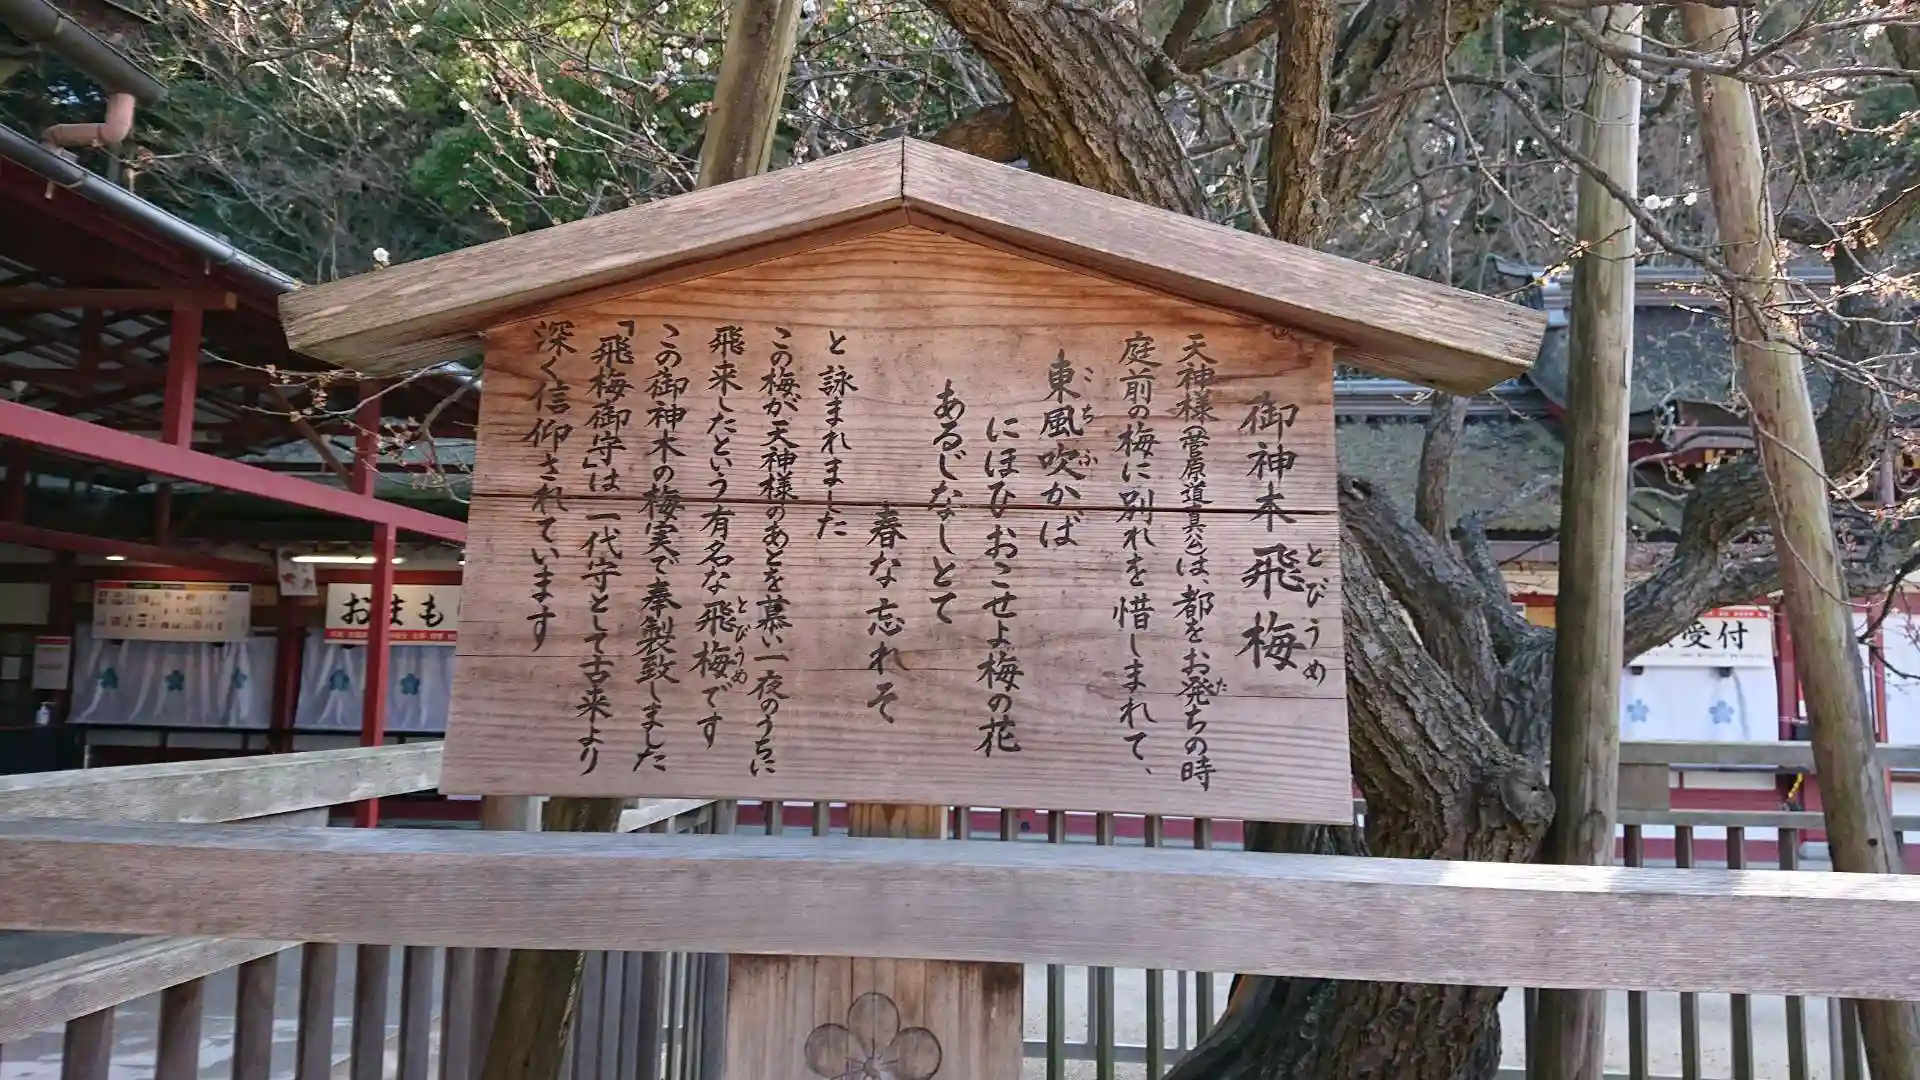 御神木飛梅
とびうめ
天神様(菅原道真公)は、都をお発ちの時
た
庭前の梅に別れを惜しまれて、
東風吹かば
こち ふ
にほひおこせよ梅の花
あるじなしとて
春な忘れそ
と詠まれました
この梅が天神様のあとを慕い一夜のうちに
飛来したという有名な飛梅です
とびうめ
この御神木の梅実で奉製致しました
「飛梅御守」は一代守として古来より
深く信仰されています
おまも
受付